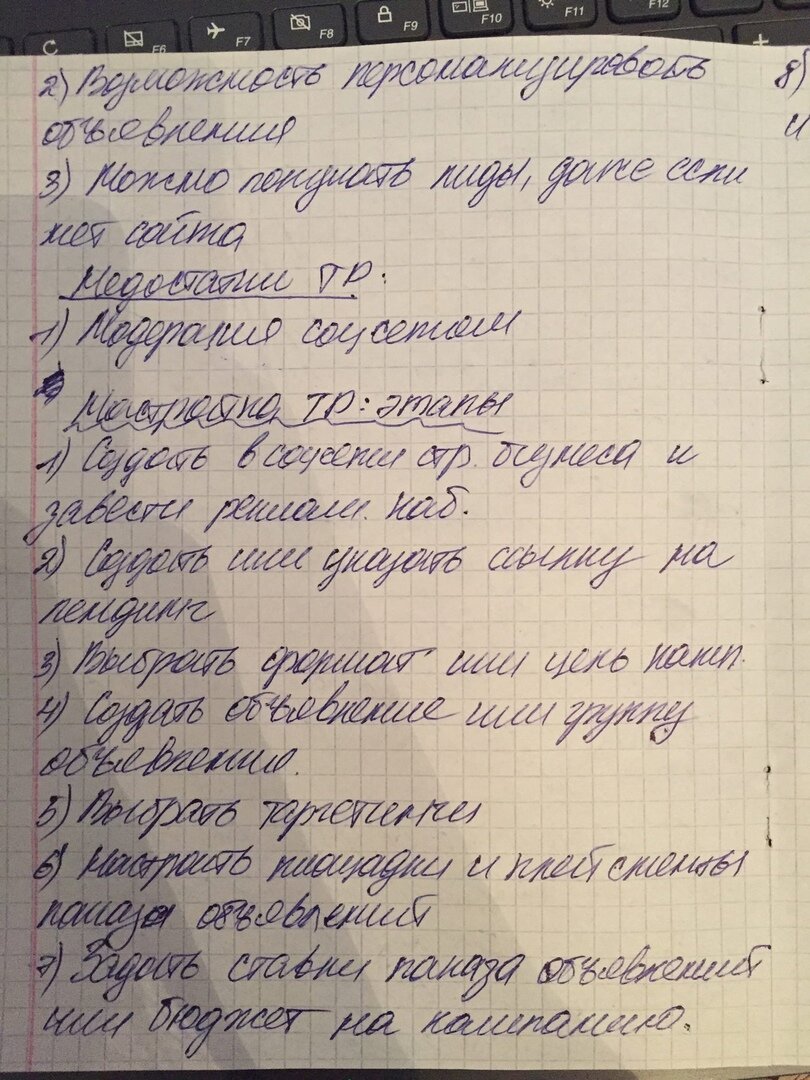 F6 F7 F8 F9 F10 F11 F12
2) Возможность персонализировать
объявления
3) Можно получать лиды, даже если
нет сайта
Недостатки ТР:
1) Модерация соцсетями
Настройка ТР: этапы
1) Создать в соцсети стр. бизнеса и
завести реклам. каб.
2) Создать или указать ссылку на
лендинг
3) Выбрать формат или цель камп.
4) Создать объявление или группу
объявлений.
5) Выбрать таргетинги
6) Настроить площадки и плейсменты
показа объявлений
7) Задать ставки показа объявлений
или бюджет на кампанию.
8)
и